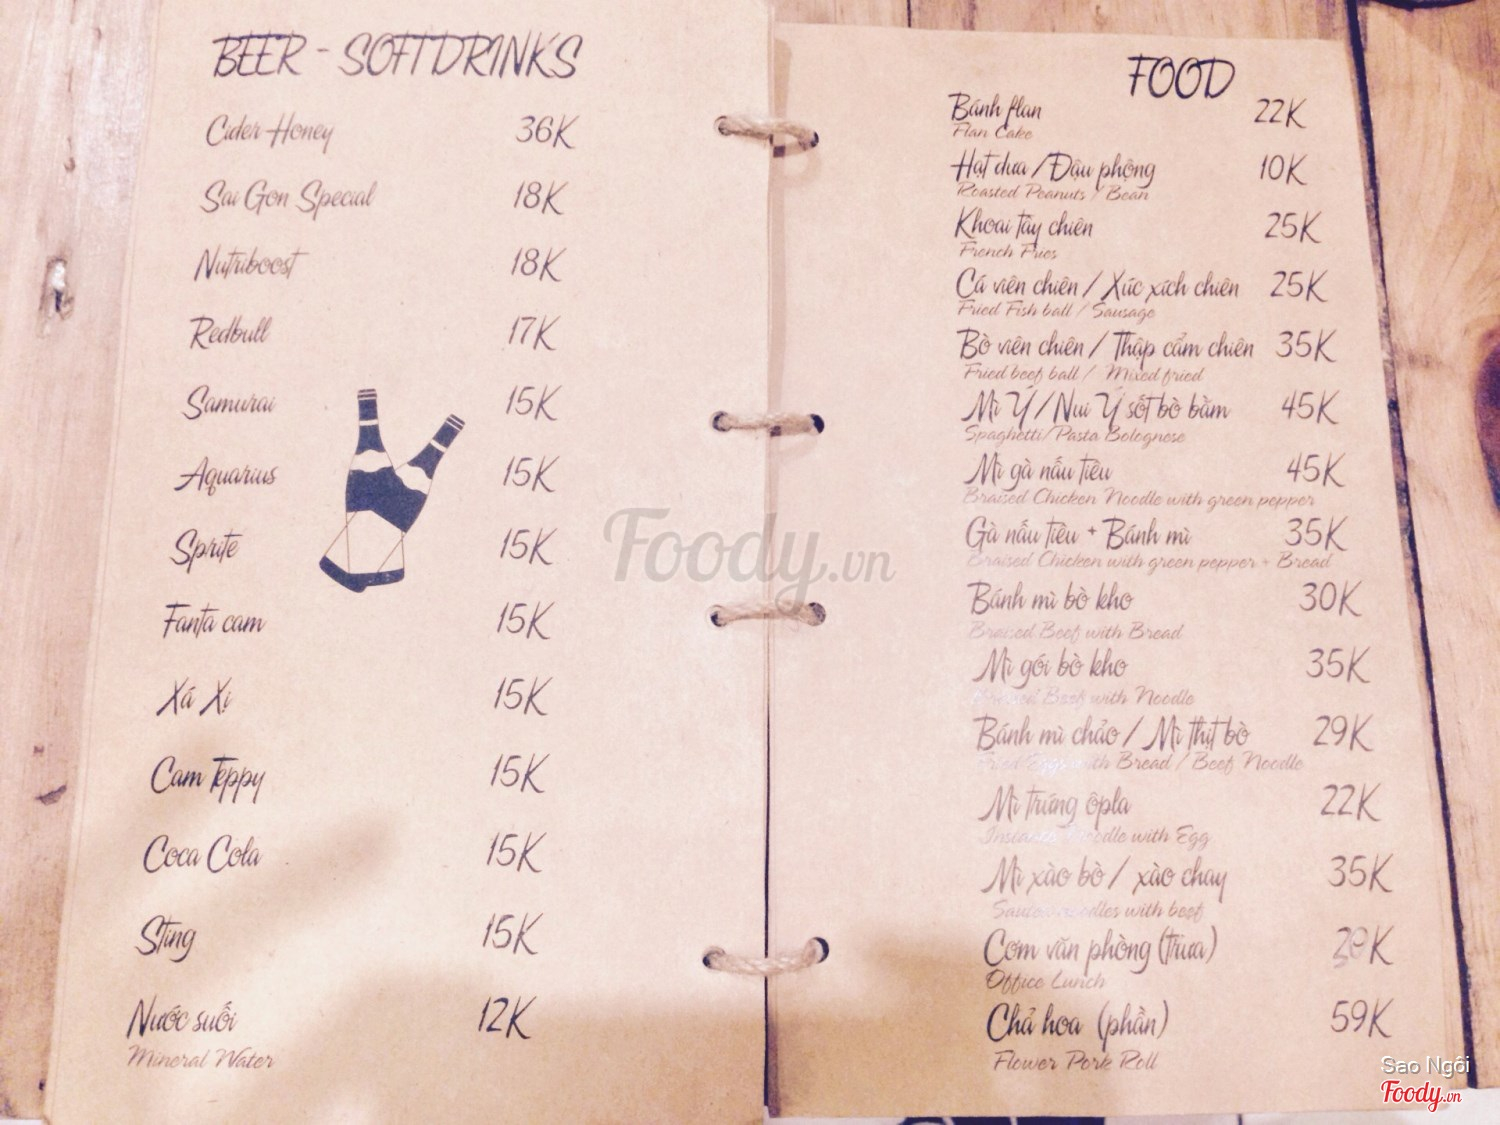 BEER - SOFTDRINKS
Cider Honey 36K
Sai Gon Special 18K
Nutriboost 18K
Redbull 17K
Samurai 15K
Aquarius 15K
Sprite 15K
Fanta cam 15K
Xá Xị 15K
Cam Teppy 15K
Coca Cola 15K
Sting 15K
Nước suối 12K
Mineral Water
FOOD
Bánh flan 22K
Flan Cake
Hạt dưa / Đậu phộng 10K
Roasted Peanuts / Bean
Khoai tây chiên 25K
French Fries
Cá viên chiên / Xúc xích chiên 25K
Fried Fish ball / Sausage
Bò viên chiên / Thập cẩm chiên 35K
Fried beef ball / Mixed fried
Mì Ý / Nui Ý sốt bò bằm 45K
Spaghetti/Pasta Bolognese
Mì gà nấu tiêu 45K
Braised Chicken Noodle with green pepper
Gà nấu tiêu + Bánh mì 35K
Braised Chicken with green pepper + Bread
Bánh mì bò kho 30K
Braised Beef with Bread
Mì gói bò kho 35K
Braised Beef with Noodle
Bánh mì chảo / Mì thịt bò 29K
Fried Eggs with Bread / Beef Noodle
Mì trứng ốpla 22K
Noodle with Egg
Mì xào bò / xào chay 35K
noodles with beef
Cơm văn phòng (trưa)
Office Lunch
Chả hoa (phần) 59K
Flower Pork Roll
Foody.vn
Sao Ngôi
Foody.vn